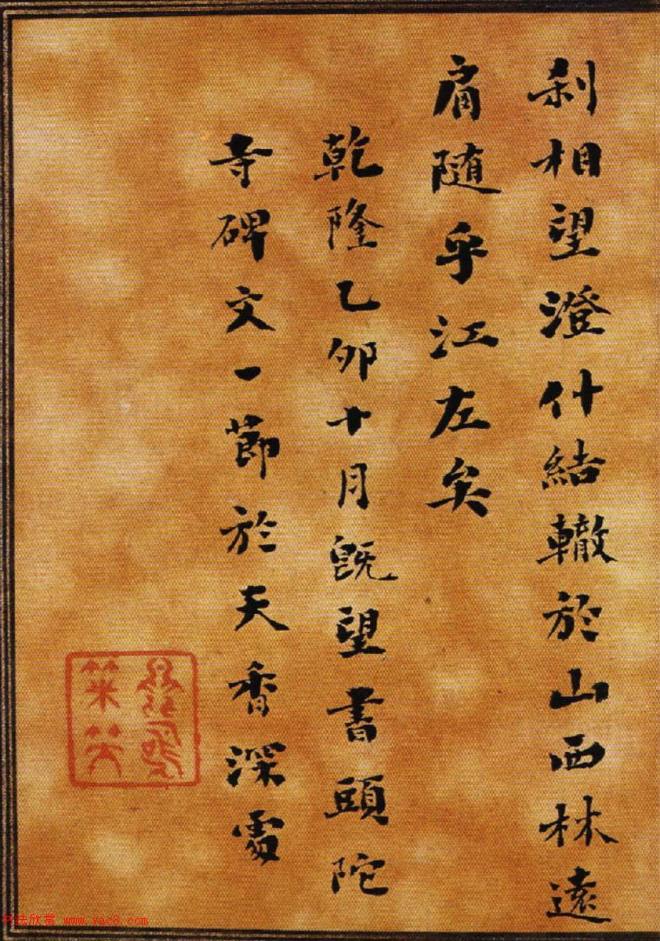 利相望澄什結轍於山西林遠
肩随乎江左矣
乾隆乙卯十月既望書頭陀
寺碑文一節於天香深處
www.yac8.com